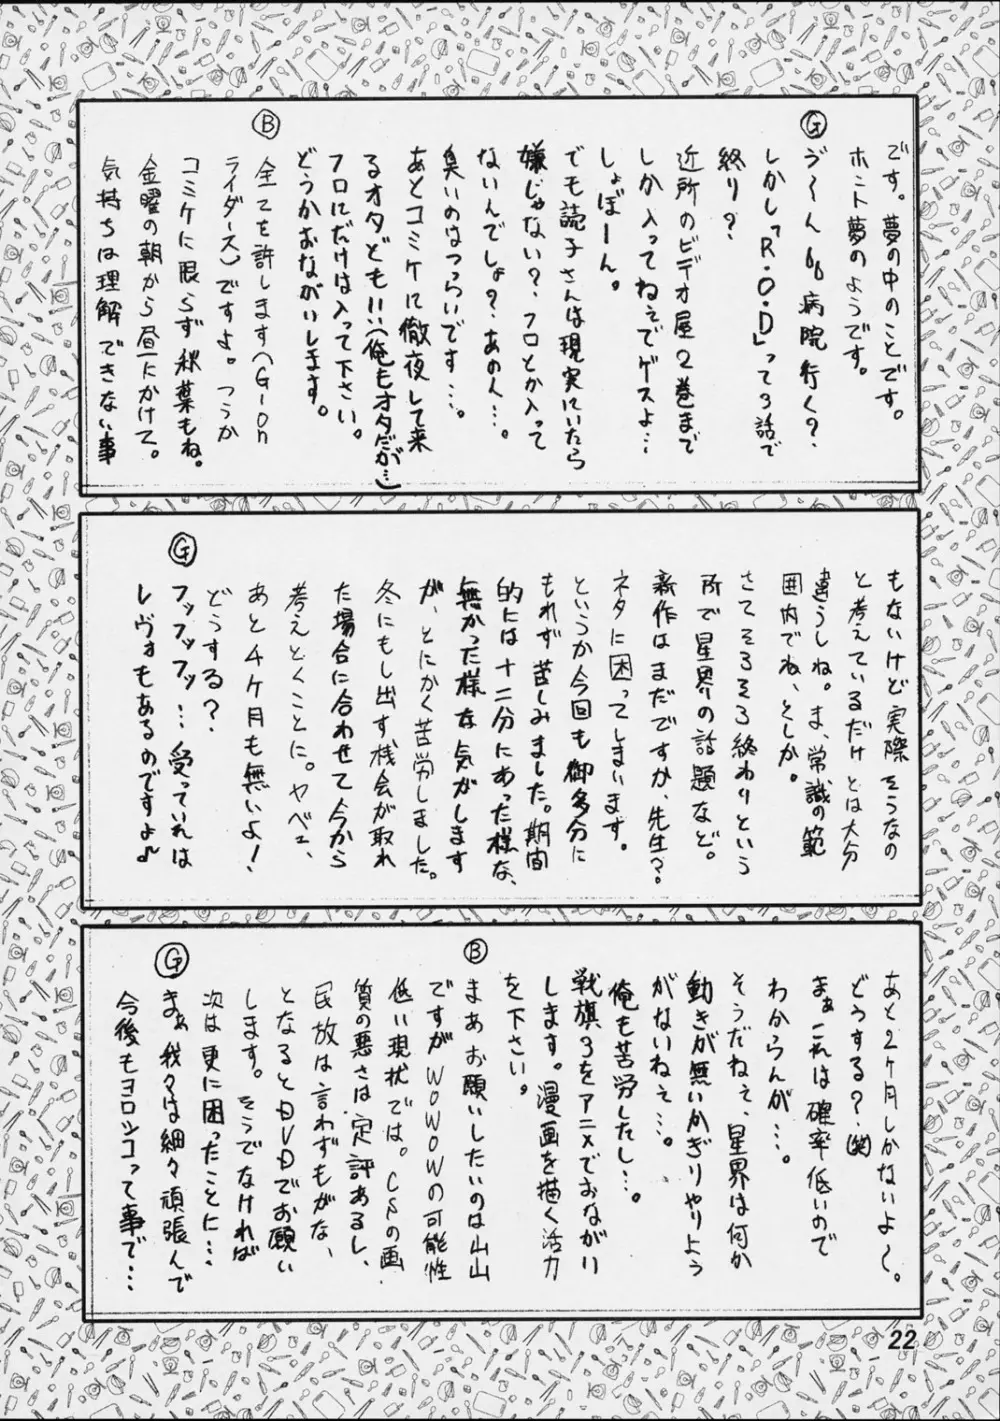 です。夢の中のことです。
ホント夢のようです。
Ⓖ う〜ん 病院行く?
しかし「R・O・D」って3話で
終り?
近所のビデオ屋2巻まで
しか入ってねぇでゲスよ…
しょぼーん。
でも読子さんは現実にいたら
嫌じゃない?フロとか入って
ないんでしょ?あの人…。
臭いのはつらいです…。
あとコミケに徹夜して来
るオタども!!(俺もオタだが…)
フロにだけは入って下さい。
どうかおながいします。
Ⓑ 全てを許します(G-on
ライダース)ですよ。つうか
コミケに限らず秋葉もね。
金曜の朝から昼にかけて。
気持ちは理解できない事
もないけど実際そうなの
と考えているだけとは大分
違うしね。ま、常識の範
囲内でね、としか。
さてそろそろ終わりという
所で星界の話題など。
新作はまだですか、先生?
ネタに困ってしまいます。
というか今回も御多分に
もれず苦しみました。期間
的には十二分にあった様な、
無かった様な気がします
が、とにかく苦労しました。
冬にもし出す機会が取れ
た場合に合わせて今から
考えとくことに。ヤベェ、
あと4ヶ月も無いよ!
どうする?
Ⓖ フッフッフッ…受っていれは
レヴォもあるのですよ♪
あと2ヶ月しかないよ〜。
どうする?(笑)
まぁこれは確率低いので
わからんが…。
そうだねぇ、星界は何か
動きが無いかぎりやりよう
がないねぇ…。
俺も苦労したし…。
戦旗3をアニメでおながい
します。漫画を描く活力
を下さい。
Ⓑ まあお願いしたいのは山山
ですがWOWOWの可能性
低い現状では。CSの画
質の悪さは定評あるし、
民放は言わずもがな、
となるとDVDでお願い
します。そうでなければ
次は更に困ったことに…
Ⓖ まぁ我々は細々頑張んで
今後もヨロシコって事で…
22